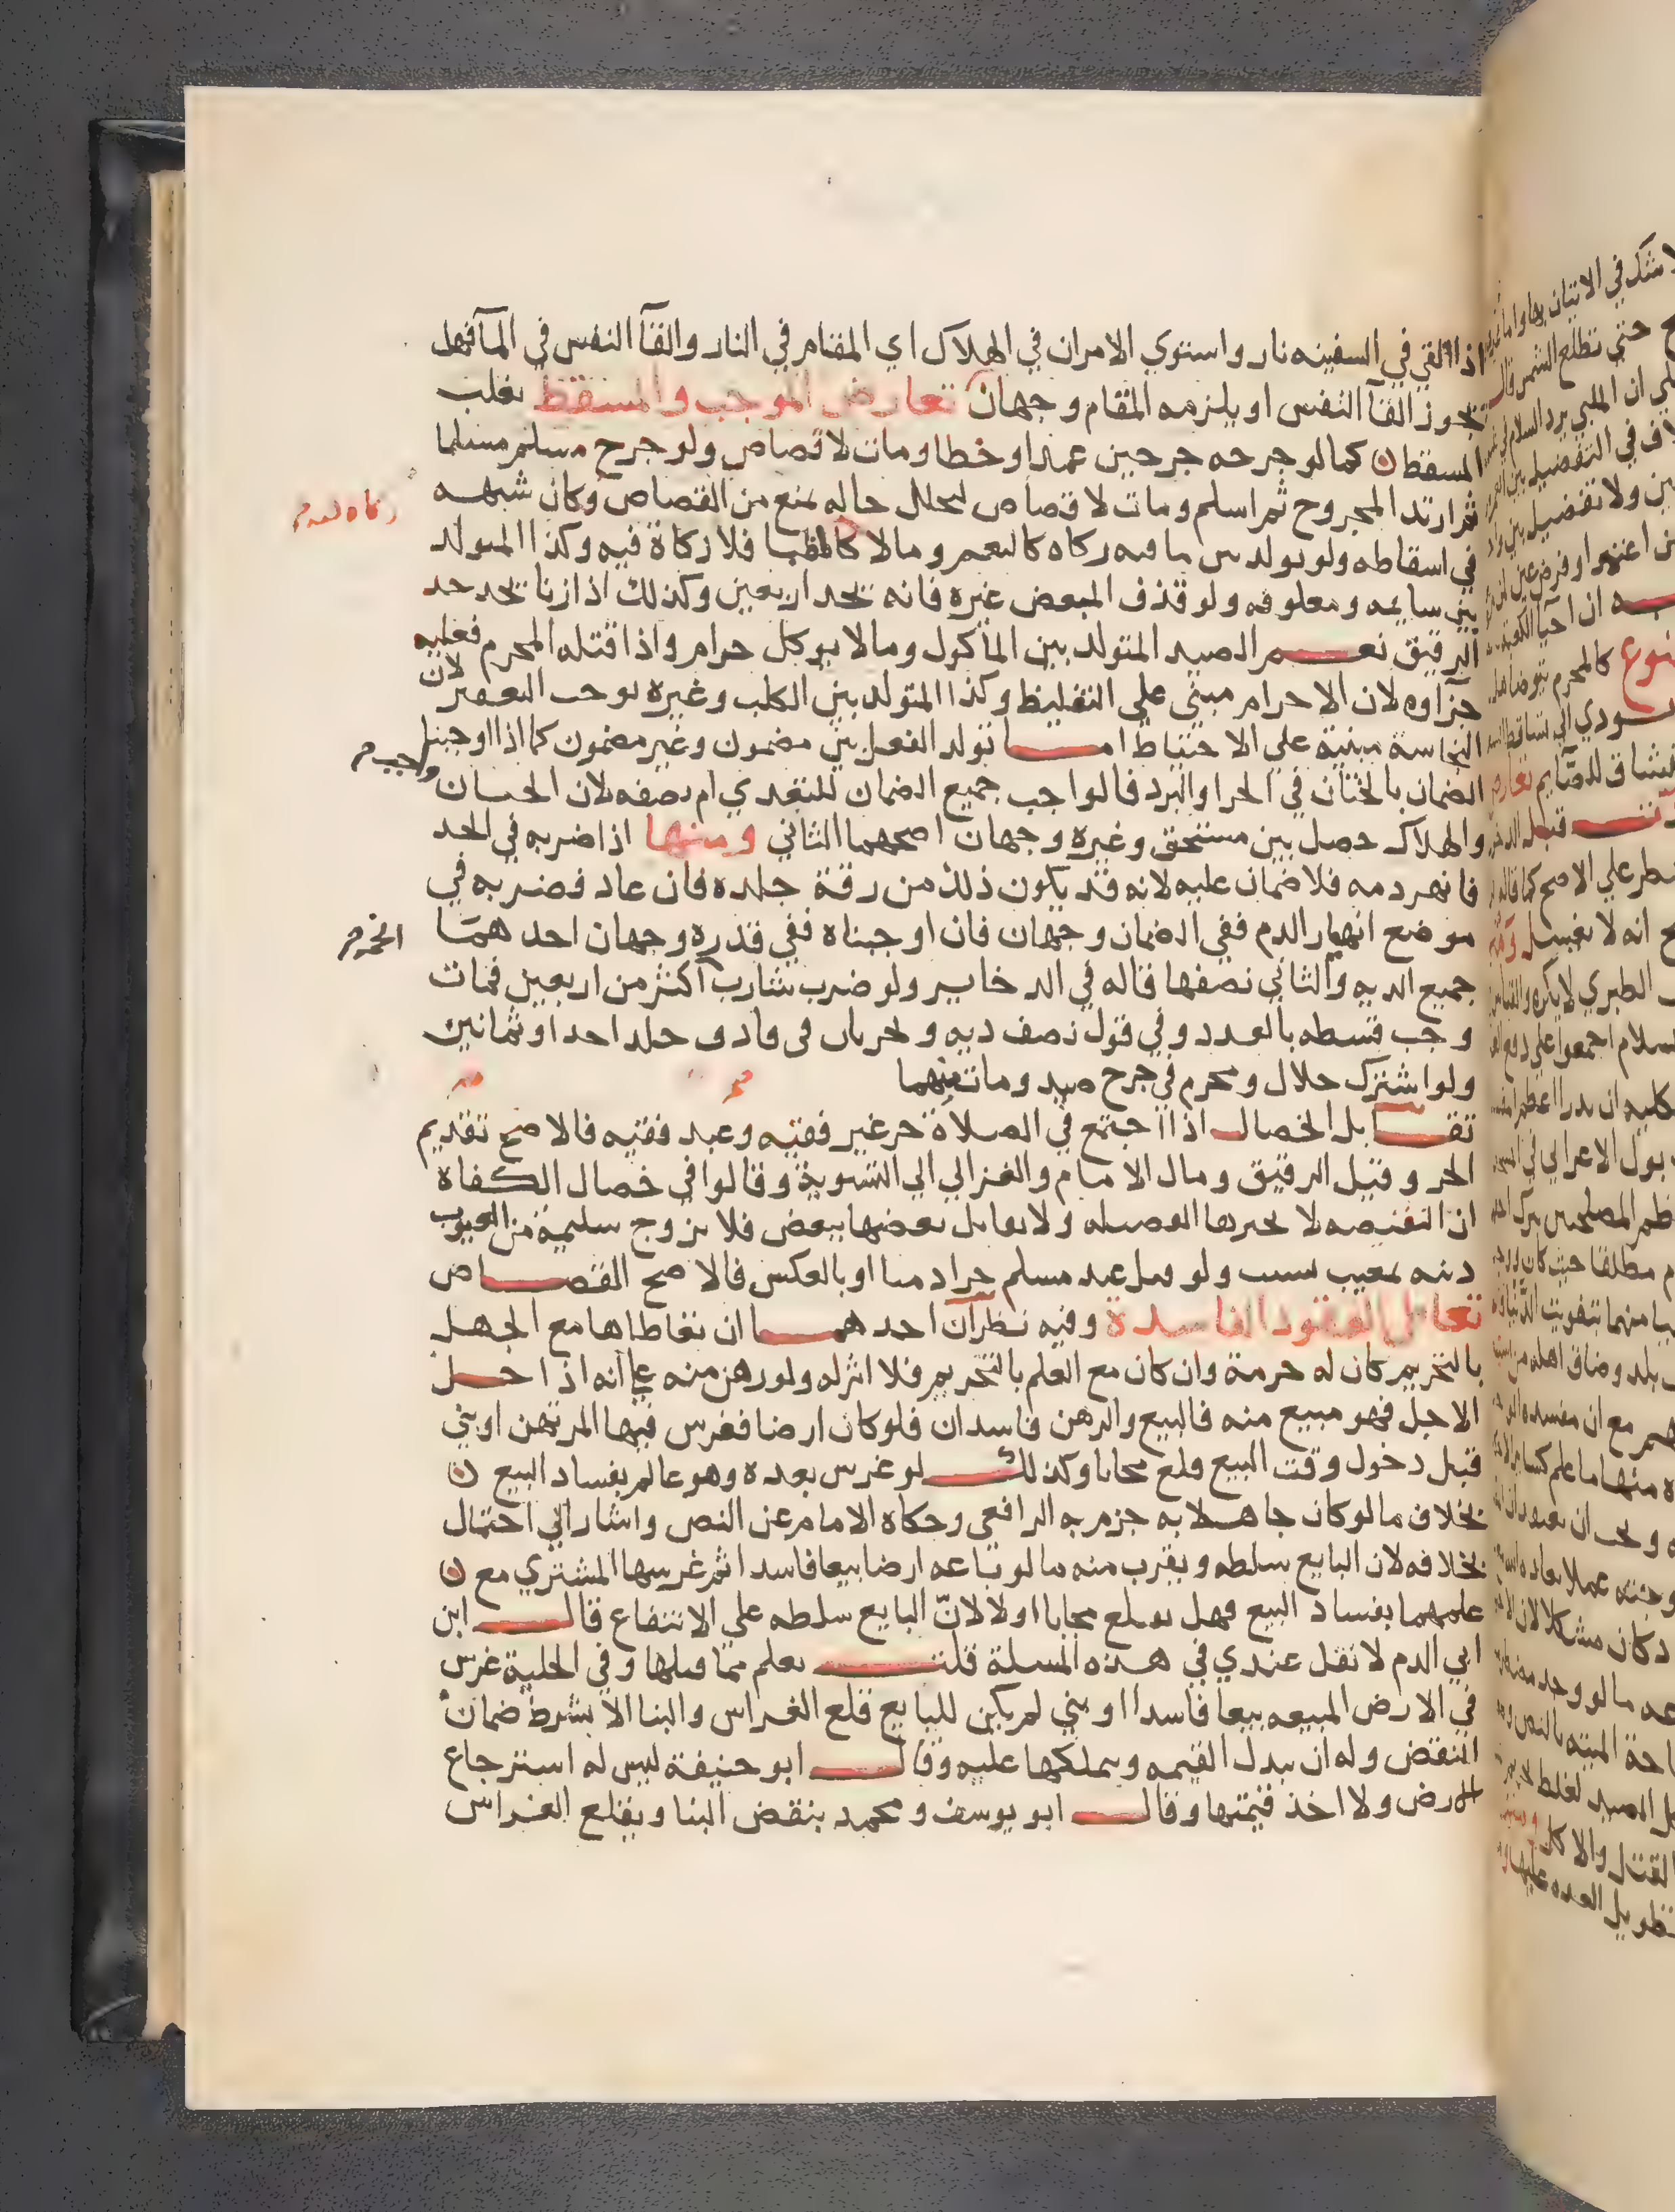 اذا القي في السفينه نار واستوي الامران في الهلاك اي المقام في النار والقآ النفس في المآ فهل
تجوز القآ النفس او يلزمه المقام وجهان تعارض الموجب والمسقط يغلب
المسقط ن كما لو جرحه جرحين عمدا وخطا ومات لا قصاص ولو جرح مسلم مسلما
ثم ارتد المجروح ثم اسلم ومات لا قصاص لتخلل حاله تمنع من القصاص وكان شبهه
في اسقاطه ولو تولد من ما فيه زكاه كالنعم ومالا كالظبا فلا زكاة فيه وكذا المتولد
بين سايمه ومعلوفه ولو قذف المبعض غيره فانه يحد اربعين وكذلك اذا زنا يحد حد
الرقيق نعم الصيد المتولد بين الماكول ومالا يوكل حرام واذا قتله المحرم فعليه
جزاوه لان الاحرام مبني علي التغليظ وكذا المتولد بين الكلب وغيره يوجب التعفير لان
النجاسة مبنية علي الاحتياط اما تولد الفعل بين مضمون وغير مضمون كما اذا اوجبنا
الضمان بالختان في الحر او البرد فالواجب جميع الضمان للتعدي ام نصفه لان الختان واجب
والهلاك حصل بين مستحق وغيره وجهان اصحهما الثاني ومنها اذا ضربه في الحد
فانهر دمه فلا ضمان عليه لانه قد يكون ذلك من رقة جلده فان عاد فضربه في
موضع انهار الدم ففي الضمان وجهان فان اوجبناه ففي قدره وجهان احدهما
جميع الديه والثاني نصفها قاله في الدخاير ولو ضرب شارب الخمر اكثر من اربعين فمات
وجب قسطه بالعدد وفي قول نصف ديه ويجريان في قاذف جلد احدا وثمانين
ولو اشترك حلال ومحرم في جرح صيد ومات منهما
تقابل الخصال اذا اجتمع في الصلاة حر غير فقيه وعبد فقيه فالاصح تقديم
الحر وقيل الرقيق ومال الامام والغزالي الي التسوية وقالوا في خصال الكفاة
ان النقيصه لا تجبرها الفضيله ولا يقابل بعضها ببعض فلا يزوج سليمة من العيوب
دنيه بمعيب نسيب ولو قتل عبد مسلم حرا دميا او بالعكس فالاصح القصاص
تعاطي العقود الفاسدة وفيه نظران احدهما ان تعاطاها مع الجهل
بالتحريم كان له حرمة وان كان مع العلم بالتحريم فلا اثر له ولو رهن منه علي انه اذا حل
الاجل فهو مبيع منه فالبيع والرهن فاسدان فلو كان ارضا فغرس فيها المرتهن او بني
قبل دخول وقت البيع قلع مجانا وكذلك لو غرس بعده وهو عالم بفساد البيع ن
بخلاف مالو كان جاهلا به جزم به الرافعي وحكاه الامام عن النص واشار الي احتمال
بخلافه لان البايع سلطه ويقرب منه مالو باعه ارضا بيعا فاسدا ثم غرسها المشتري مع ن
علمهما بفساد البيع فهل يقلع مجانا اولا لانّ البايع سلطه علي الانتفاع قال ابن
ابي الدم لا نقل عندي في هذه المسلة قلت يعلم مما قبلها وفي الحلية غرس
في الارض المبيعه بيعا فاسدا او بني لم يكن للبايع قلع الغراس والبنا الا بشرط ضمان
النقض وله ان يبدل القيمه ويملكها عليه وقال ابو حنيفة ليس له استرجاع
الارض ولا اخذ قيمتها وقال ابو يوسف ومحمد ينقض البنا ويقلع الغراس